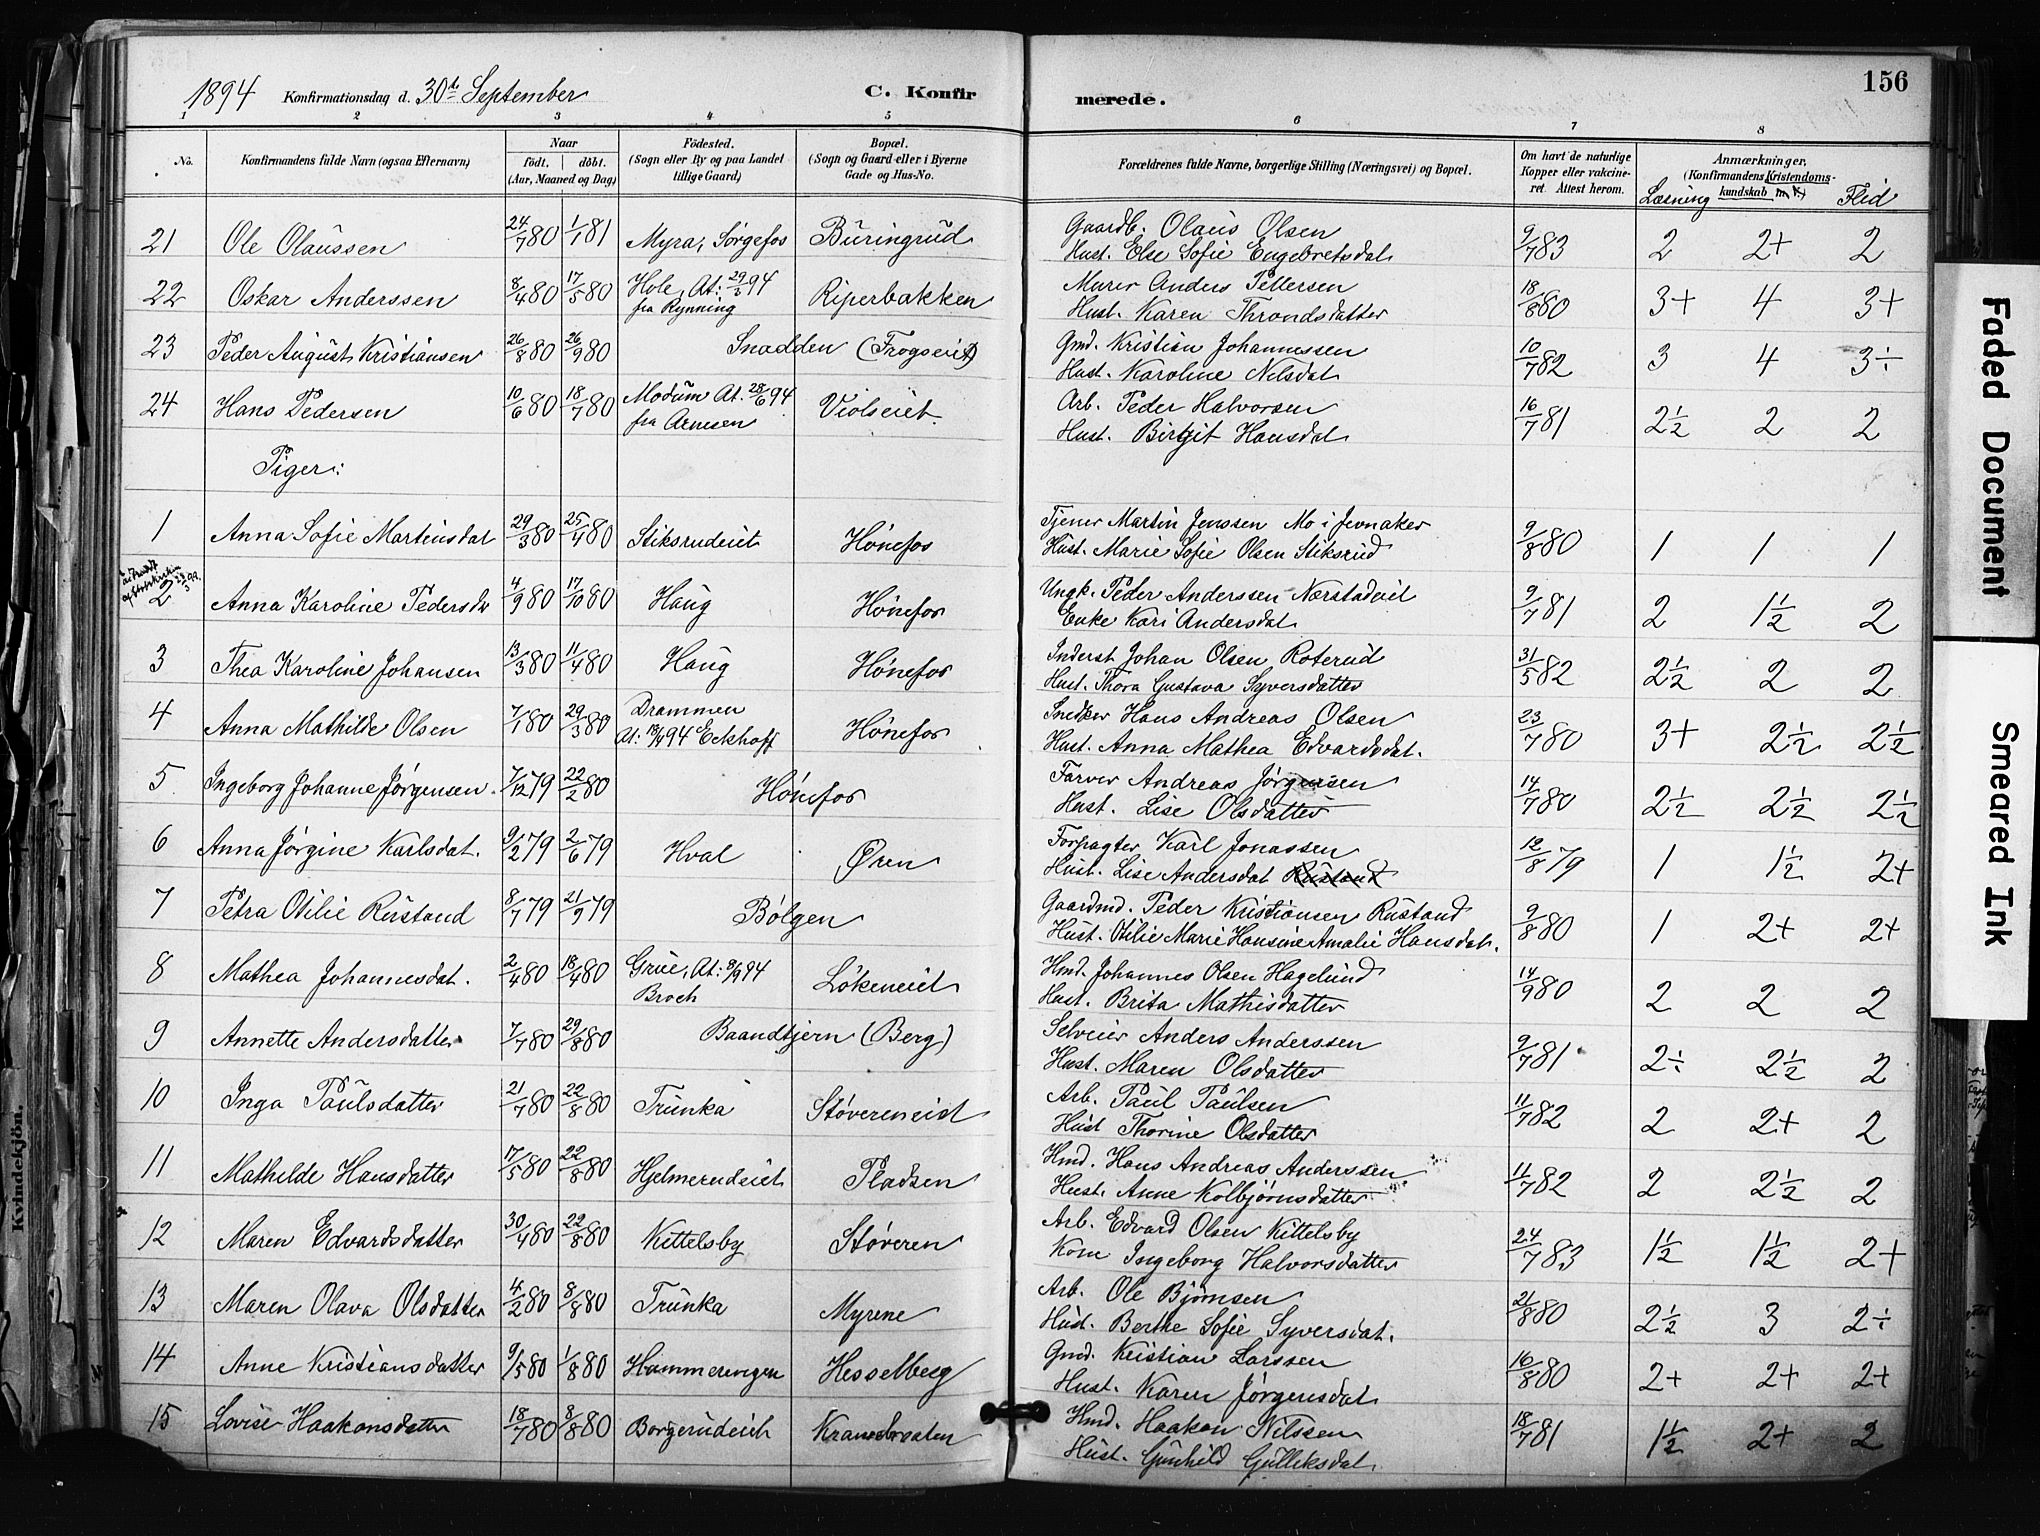 156
1894 Konfirmationsdag d. 30te September C. Konfirmerede.
1 2 3 4 5 6 7 8
No. Konfirmandens fulde Navn (ogsaa Efternavn) Naar født, døbt. (Aar, Maaned og Dag) Födested. (Sogn eller By og paa Landet tillige Gaard) Bopæl. (Sogn og Gaard eller i Byerne Gade og Hus-No. Forældrenes fulde Navne, borgerlige Stilling (Næringsvei) og Bopæl. Om havt de naturlige Kopper eller vakcineret. Attest herom. Anmærkninger, (Konfirmandens Kristendomskundskab m. v.)
Læsning Flid
21 Ole Olaussen 24/7 80 1/1 81 Myra, Sørgefos Buringrud Gaardb. Olaus Olsen 9/7 83 2 2+ 2
Hust. Else Sofie Engebretsdat.
22 Oskar Anderssen 8/4 80 17/5 80 Hole, At: 29/3 94 Riperbakken Murer Anders Pettersen 18/8 80 3+ 4 3+
fra Rynning Hust. Karen Throndsdatter
23 Peder August Kristiansen 26/8 80 26/9 80 Snadden (Frogseiet) Gmd. Kristian Johannessen 10/7 82 3 4 3÷
Hust. Karoline Nilsdat.
24 Hans Pedersen 10/6 80 18/7 80 Modum At. 28/6 94 Violseiet. Arb. Peder Halvorsen 16/7 81 2½ 2 2
fra Arnesen Hust. Birgit Hansdat.
Piger:
1 Anna Sofie Martinsdat 29/3 80 25/4 80 Stiksrudeiet Hønefos Tjener Martin Jenssen Mo i Jevnaker 9/8 80 1 1 1
Hust. Marie Sofie Olsen Stiksrud
2 Anna Karoline Pedersdr 4/9 80 17/10 80 Haug Hønefos Ungk. Peder Anderssen Nærstadeiet 9/7 81 2 1½ 2
Enke Kari Andersdat.
3 Thea Karoline Johansen 13/3 80 11/4 80 Haug Hønefos Inderst Johan Olsen Roterud 31/5 82 2½ 2 2
Hust. Thora Gustava Syversdatter
4 Anna Mathilde Olsen 7/1 80 29/3 80 Drammen Hønefos Snedker Hans Andreas Olsen 23/7 80 3+ 2½ 2½
At: 94 Eckhoff Hust. Anna Mathea Edvardsdat.
5 Ingeborg Johanne Jørgensen. 7/12 79 22/2 80 Hønefos Farver Andreas Jørgensen 14/7 80 2½ 2½ 2½
Hust. Lise Olsdatter
6 Anna Jørgine Karlsdat. 9/2 79 2/6 79 Hval Øren Forpagter Karl Jonassen 12/8 79 1 1½ 2+
Hust. Lise Andersdat Rustand
7 Petra Otilie Rustand 8/7 79 21/9 79 Bølgen Gaardmd. Peder Kristiansen Rustand 9/8 80 1 2+ 2+
Hust. Otilie Marie Hansine Amalie Hansdat.
8 Mathea Johannesdat. 2/4 80 18/4 80 Grue, At: 8/9 94 Lökeneiet Hmd. Johannes Olsen Hagelund 14/9 80 2 2 2
Broch Hust. Brita Mathisdatter
9 Annette Andersdatter 7/7 80 29/8 80 Baandtjern (Berg) Selveier Anders Anderssen 9/7 81 2÷ 2½ 2
Hust. Maren Olsdatter
10 Inga Paulsdatter 21/7 80 22/8 80 Trunka Støvereneiet Arb. Paul Paulsen 11/7 82 2 2+ 2
Hust Thorine Olsdatter
11 Mathilde Hansdatter 17/5 80 22/8 80 Hjelmerudeiet Pladsen Hmd. Hans Andreas Anderssen 11/7 82 2 2½ 2
Hust. Anne Kolbjørnsdatter
12 Maren Edvardsdatter 30/4 80 22/8 80 Kittelsby Støveren Arb. Edvard Olsen Kittelsby 24/7 83 1½ 1½ 2+
Kone Ingeborg Halvorsdatter
13 Maren Olava Olsdatter 4/2 80 8/8 80 Trunka Myrene Arb. Ole Bjørnsen 21/8 80 2½ 3 2÷
Hust. Berthe Sofie Syversdat.
14 Anne Kristiansdatter 9/5 80 1/8 80 Hammerengen Hesselberg Gmd. Kristian Larssen 16/8 80 2+ 2+ 2+
Hust. Karen Jørgensdat.
15 Lovise Haakonsdatter 18/7 80 8/8 80 Borgerudeiet Kranebraaten Hmd. Haakon Nilssen 18/7 81 1½ 2+ 2
Hust. Gunhild Gulleksdat.
Kvindekjön.
Faded Document
Smeared Ink